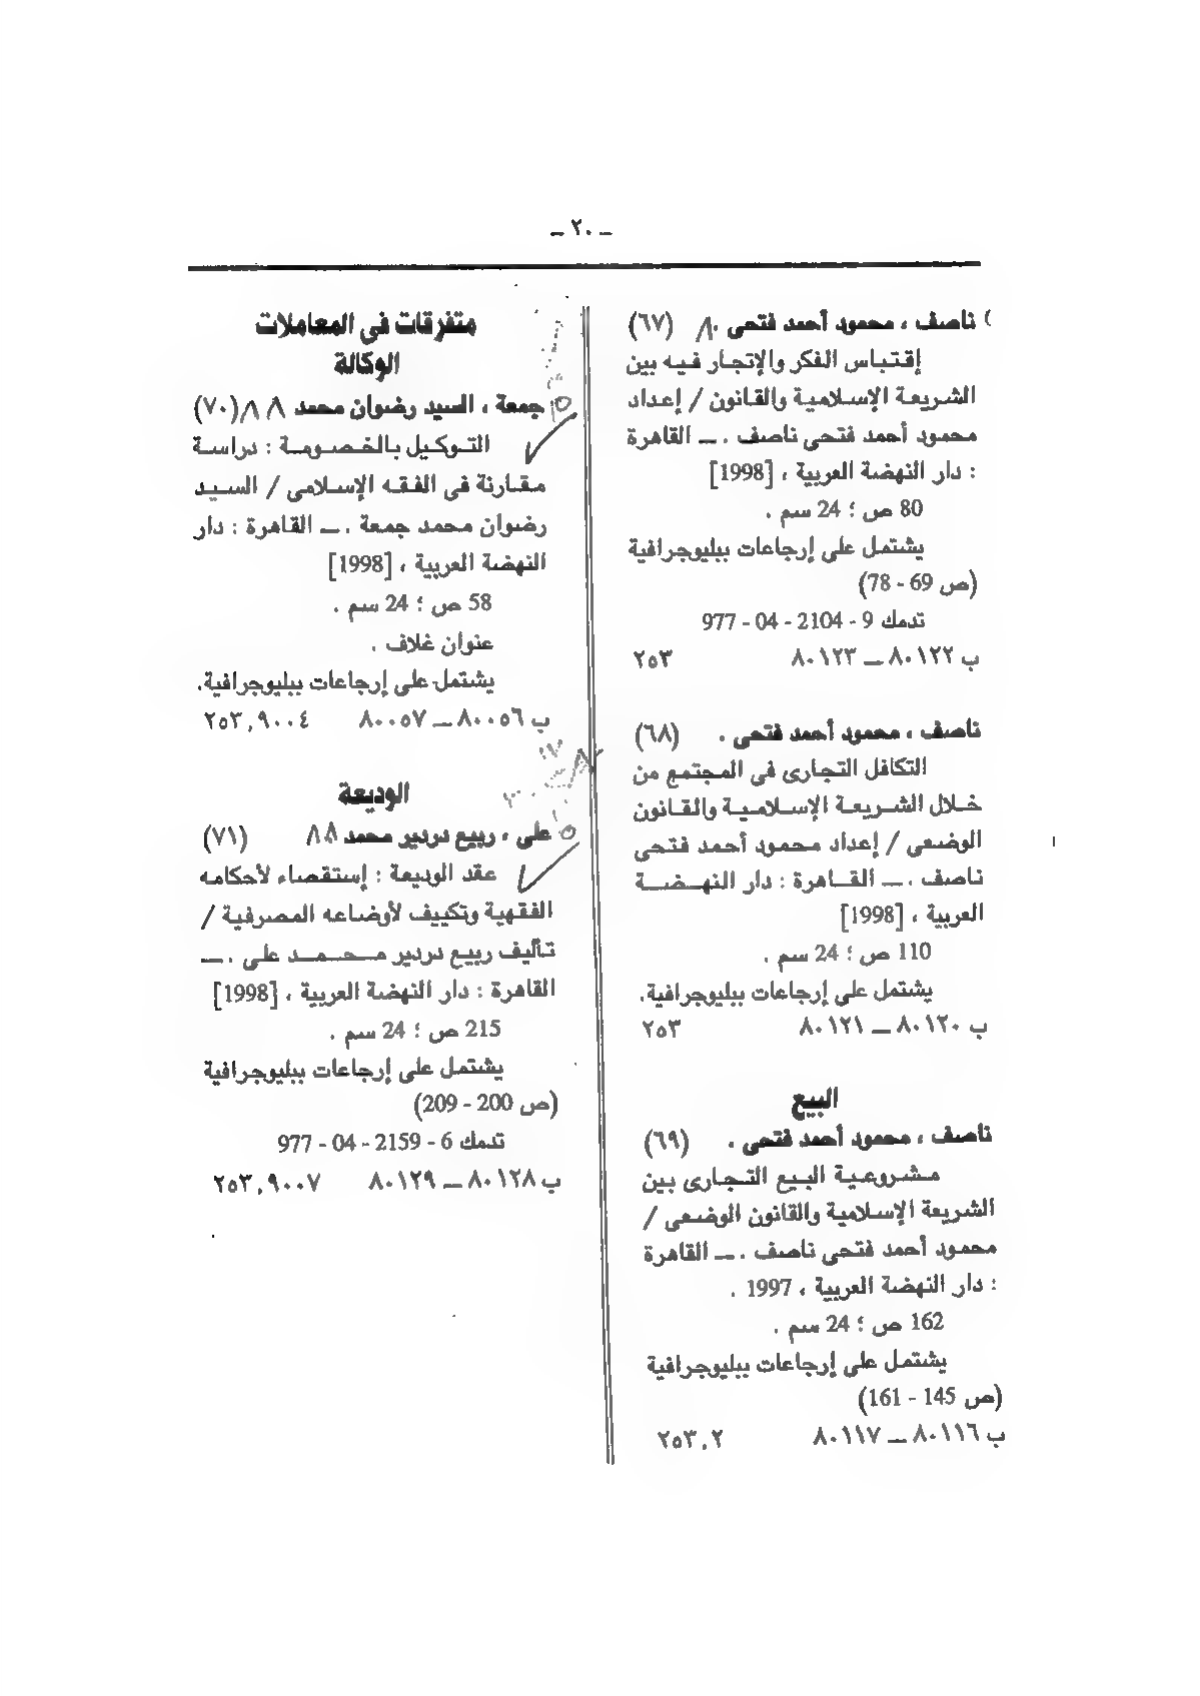 – ٢٠ –
ناصف ، محمود أحمد فتحى ٨٠ (٦٧)
إقتباس الفكر والإتجار فيه بين
الشريعة الإسلامية والقانون / إعداد
محمود أحمد فتحى ناصف . ـ القاهرة
: دار النهضة العربية ، [1998]
80 ص ؛ 24 سم .
يشتمل على إرجاعات ببليوجرافية
(ص 69 - 78)
تدمك 9 - 2104 - 04 - 977
ب ٨٠١٢٢ ـ ٨٠١٢٣ ٢٥٣
ناصف ، محمود أحمد فتحى . (٦٨)
التكافل التجارى فى المجتمع من
خلال الشريعة الإسلامية والقانون
الوضعى / إعداد محمود أحمد فتحى
ناصف . ـ القاهرة : دار النهضة
العربية ، [1998]
110 ص ؛ 24 سم .
يشتمل على إرجاعات ببليوجرافية.
ب ٨٠١٢٠ ـ ٨٠١٢١ ٢٥٣
البيع
ناصف ، محمود أحمد فتحى . (٦٩)
مشروعية البيع التجارى بين
الشريعة الإسلامية والقانون الوضعى /
محمود أحمد فتحى ناصف . ـ القاهرة
: دار النهضة العربية ، 1997 .
162 ص ؛ 24 سم .
يشتمل على إرجاعات ببليوجرافية
(ص 145 - 161)
ب ٨٠١١٦ ـ ٨٠١١٧ ٢٥٣,٢
متفرقات فى المعاملات
الوكالة
جمعة ، السيد رضوان محمد ٨٨ (٧٠)
التوكيل بالخصومة : دراسة
مقارنة فى الفقه الإسلامى / السيد
رضوان محمد جمعة . ـ القاهرة : دار
النهضة العربية ، [1998]
58 ص ؛ 24 سم .
عنوان غلاف .
يشتمل على إرجاعات ببليوجرافية.
ب ٨٠٠٥٦ ـ ٨٠٠٥٧ ٢٥٣,٩٠٠٤
الوديعة
على ، ربيع دردير محمد ٨٨ (٧١)
عقد الوديعة : إستقصاء لأحكامه
الفقهية وتكييف لأوضاعه المصرفية /
تأليف ربيع دردير محمد على . ـ
القاهرة : دار النهضة العربية ، [1998]
215 ص ؛ 24 سم .
يشتمل على إرجاعات ببليوجرافية
(ص 200 - 209)
تدمك 6 - 2159 - 04 - 977
ب ٨٠١٢٨ ـ ٨٠١٢٩ ٢٥٣,٩٠٠٧